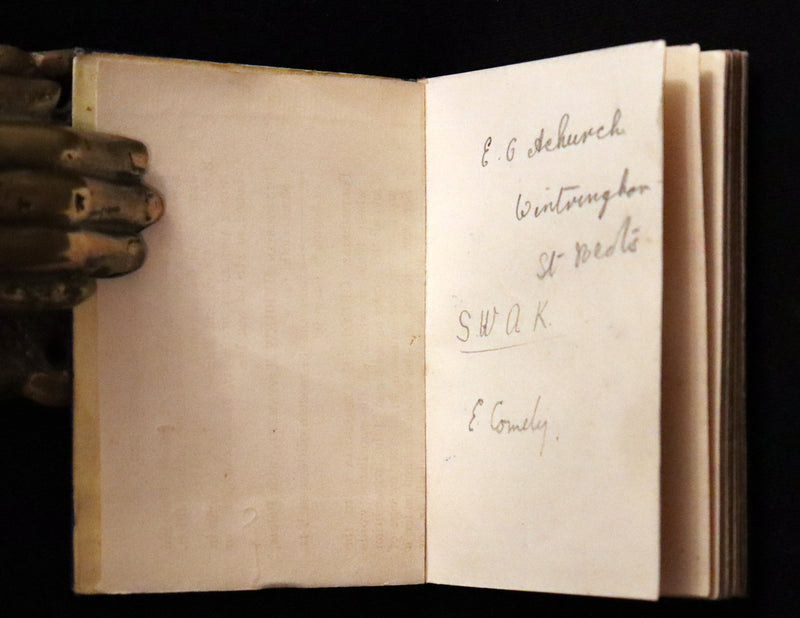 E. G Achurch
Wintringham
St Neots
S.W A K.
E. Comely.